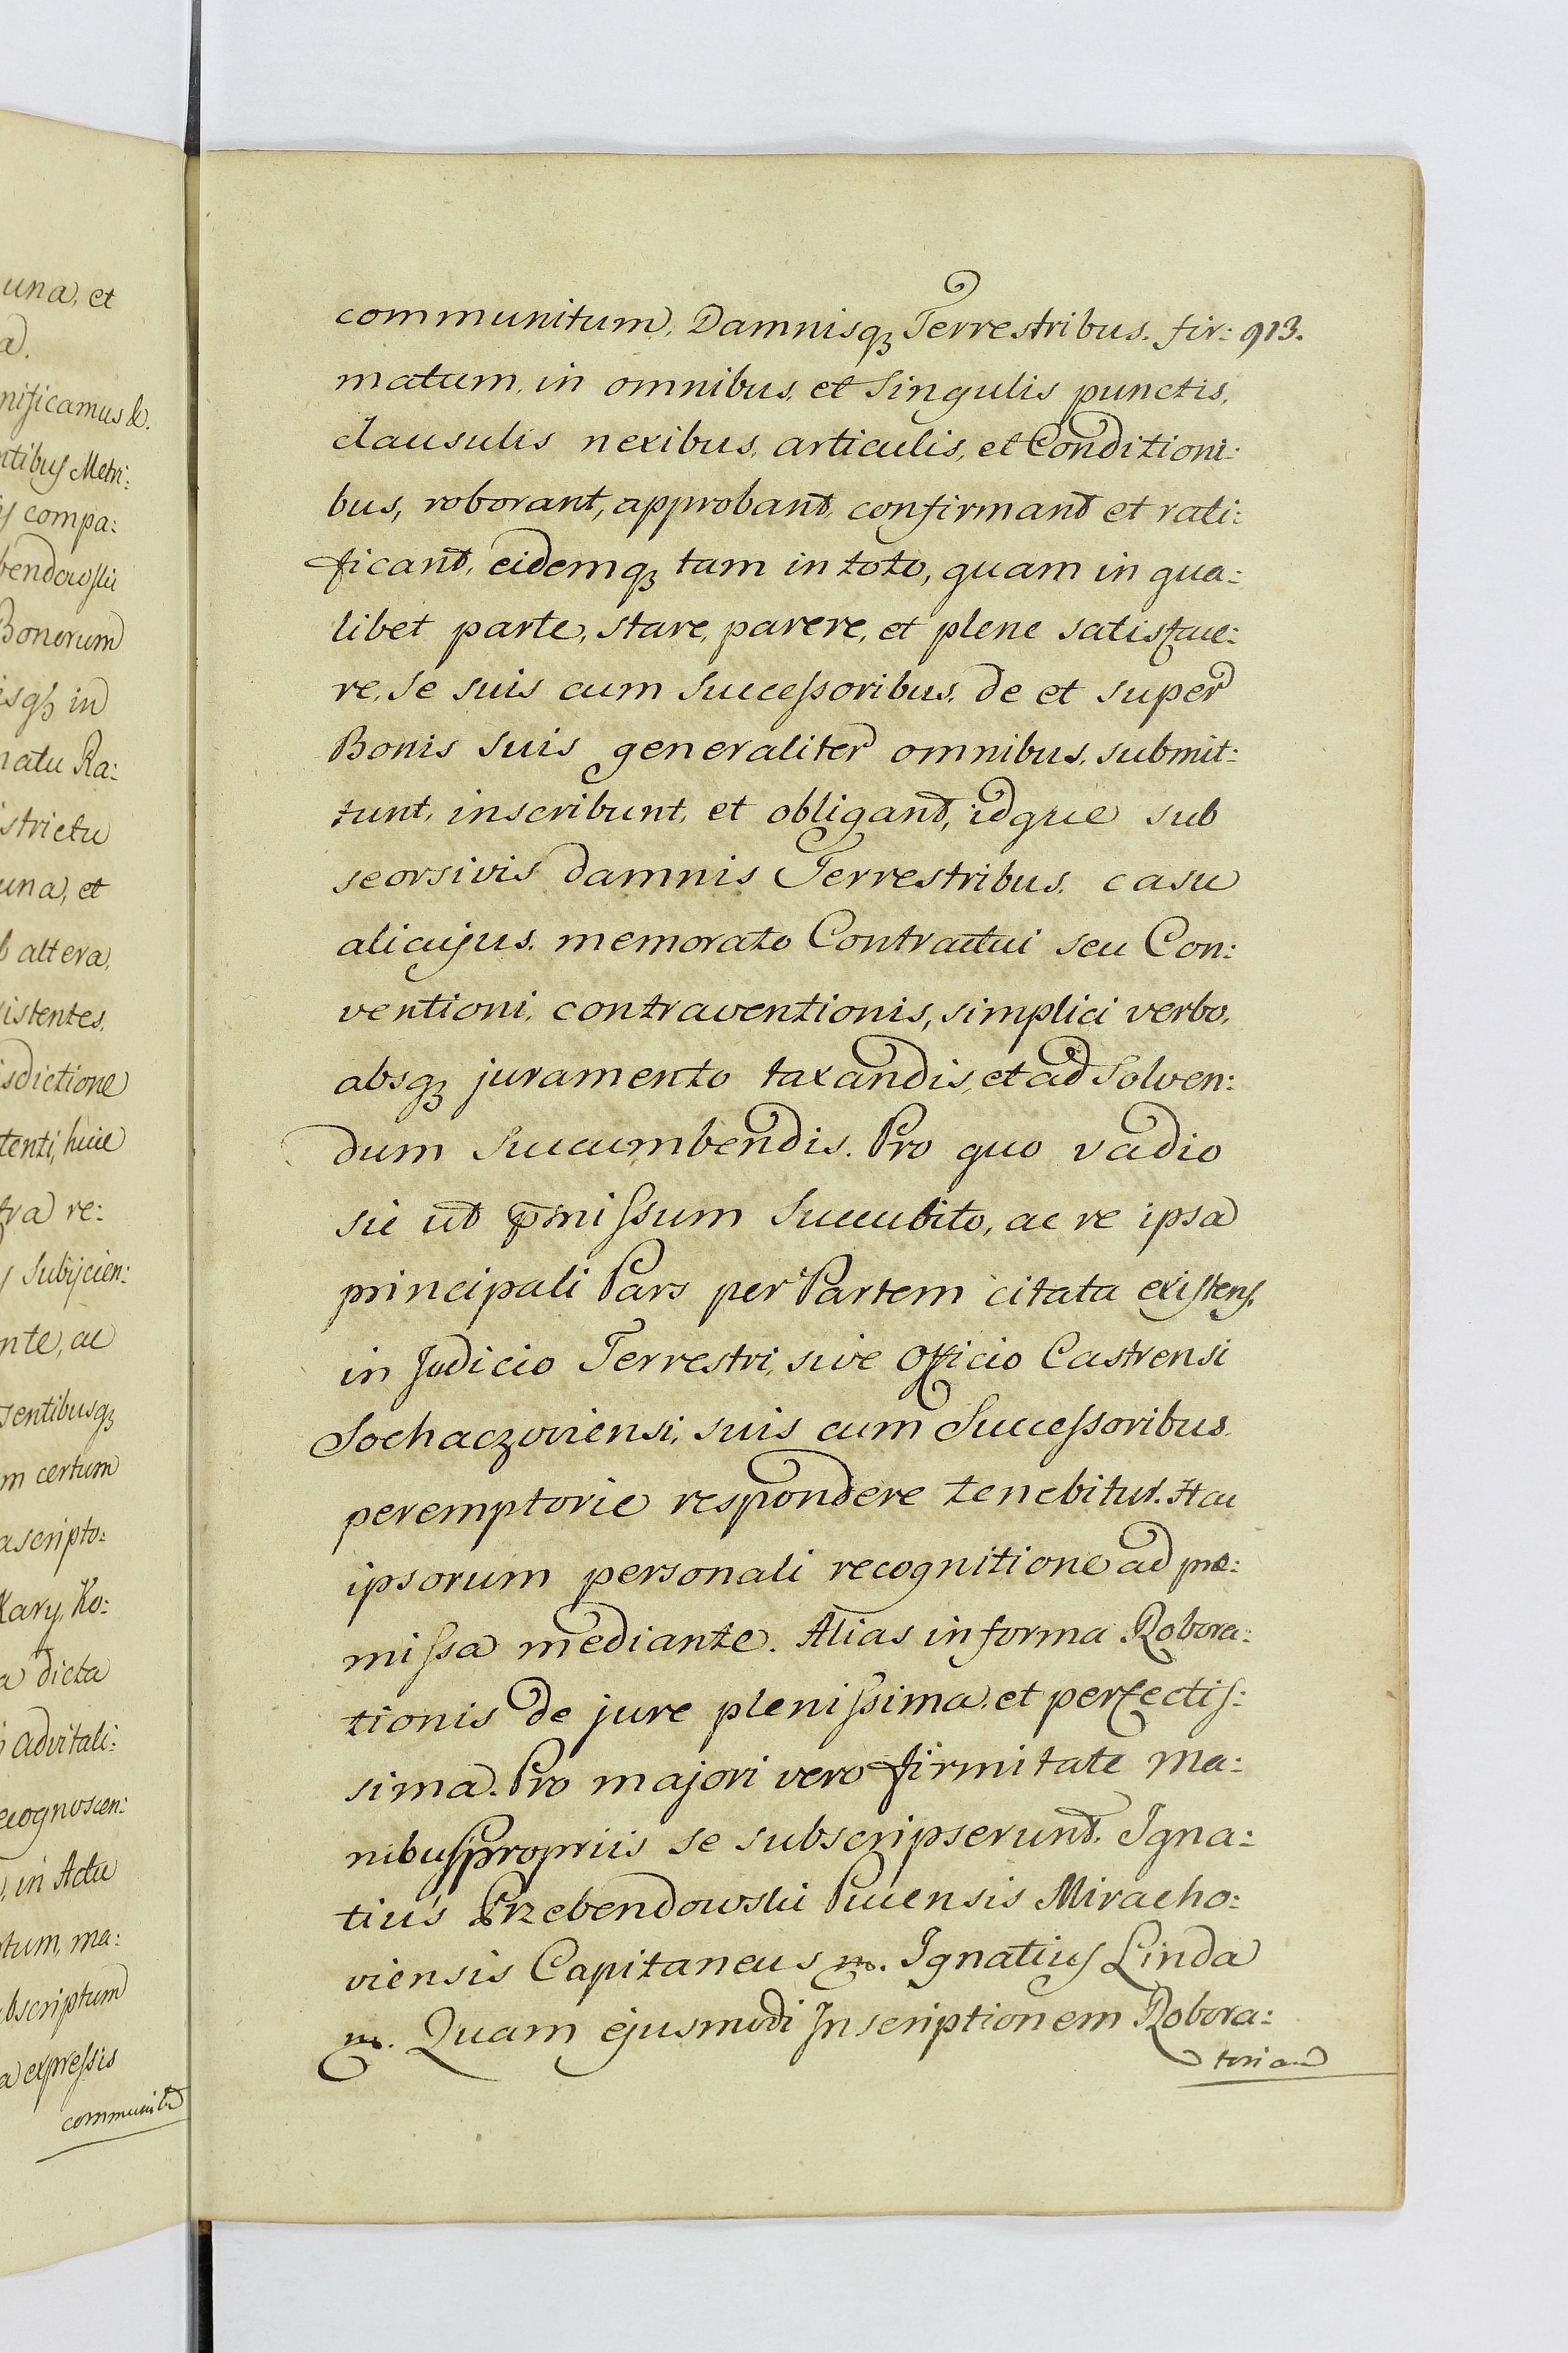 una, et
a.
nificamus &.
ntibus Metri:
compa:
bendowski
Bonorum
isqz in
natu Ra:
istrictu
una, et
altera,
istentes,
isdictione
tenti, huic
tra re:
Subijcien:
nte, ac
sentibusqz
m certum
ascripto:
Kary, Ko:
a dicta
advitali:
ecognoscen:
, in Actu
tum, ma:
bscriptum
a expressis
communitu
communitum, Damnisqz Terrestribus. fir: 913.
matum, in omnibus, et Singulis punctis,
clausulis nexibus, articulis, et Conditioni:
bus, roborant, approbant, confirmant et rati:
ficant, eidemqz tam in toto, quam in qua:
libet parte, stare, parere, et plene satisface:
re, se suis cum Successoribus, de et super
Bonis suis generaliter omnibus, submit:
tunt, inscribunt, et obligant, idque sub
seorsivis damnis Terrestribus, casu
alicujus, memorato Contractui seu Con:
ventioni, contraventionis, simplici verbo,
absqz juramento taxandis, et ad Solven:
dum Succumbendis. Pro quo vadio
sic ut p̄missum Succubito, ac re ipsa
principali Pars per Partem citata existens,
in Judicio Terrestri, sive Officio Castrensi
Sochaczoviensi, suis cum Successoribus
peremptorie respondere tenebitur. Hac
ipsorum personali recognitione ad præ:
missa mediante. Alias in forma Robora:
tionis de jure plenissima, et perfectis:
sima. Pro majori vero firmitate Ma:
nibus propriis se subscripserunt. Igna:
tius Przebendowski Pucensis Miracho:
viensis Capitaneus m. Ignatius Linda
m. Quam ejusmodi Inscriptionem Robora:
toriam